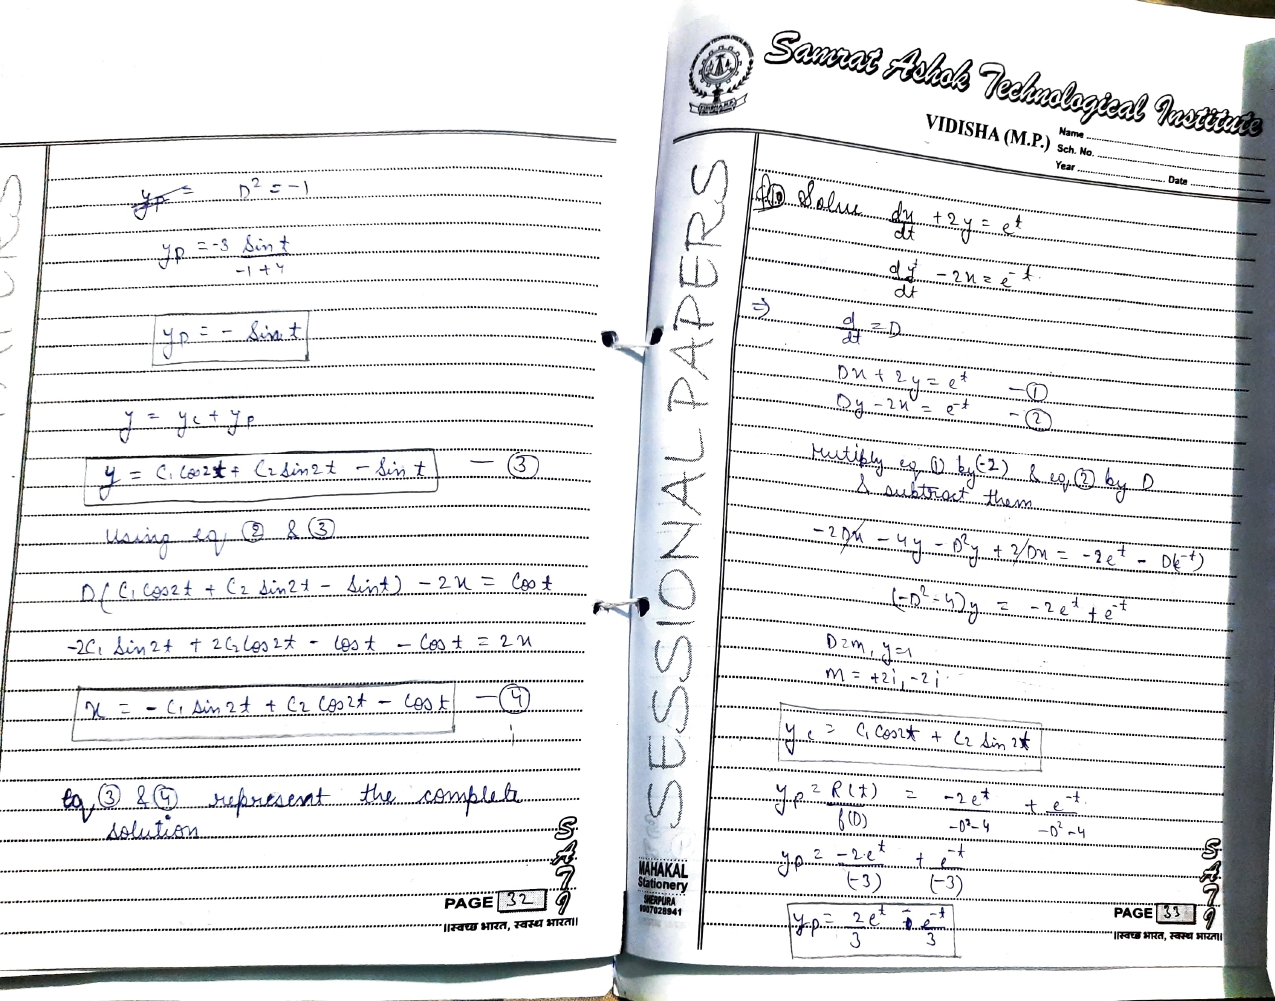 D² = -1
yp = -3 Sint
-1+4
yp = - Sin t
y = yc + yp
y = C₁ Cos2t + C₂ Sin2t - Sin t — ③
Using eq ② & ③
D( C₁ Cos2t + C₂ Sin2t - Sint) - 2x = Cos t
-2C₁ Sin2t + 2C₂ Cos2t - Cos t - Cos t = 2x
x = - C₁ Sin2t + C₂ Cos2t - Cos t — ④
eq ③ & ④ represent the complete
solution
PAGE 32
SATI
॥स्वच्छ भारत, स्वस्थ भारत॥
SESSIONAL PAPERS
MAHAKAL
Stationery
SHERPURA
9007028941
Samrat Ashok Technological Institute
VIDISHA (M.P.)
Name
Sch. No.
Year
Date
Solve dx/dt + 2y = eᵗ
dy/dt - 2x = e⁻ᵗ
⇒ d/dt = D
Dx + 2y = eᵗ — ①
Dy - 2x = e⁻ᵗ — ②
Multiply eq ① by (-2) & eq ② by D
& subtract them
-2Dx - 4y - D²y + 2Dx = -2eᵗ - D(e⁻ᵗ)
(-D² - 4)y = -2eᵗ + e⁻ᵗ
D=m, y=1
m = +2i, -2i
yc = C₁ Cos2t + C₂ Sin 2t
yp = R(t)/f(D) = -2eᵗ/-D²-4 + e⁻ᵗ/-D²-4
yp = -2eᵗ/(-3) + e⁻ᵗ/(-3)
yp = 2eᵗ/3 - e⁻ᵗ/3
PAGE 33
SATI
॥स्वच्छ भारत, स्वस्थ भारत॥